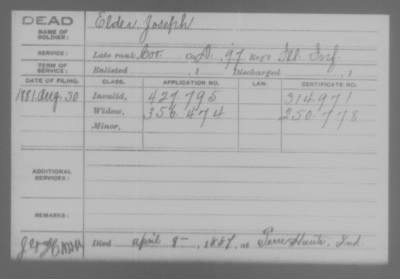 DEAD
NAME OF SOLDIER: Elder Joseph
SERVICE: Late rank, Cor. Co. D. 97 Reg't Ill. Inf.
TERM OF SERVICE: Enlisted , 1 Discharged , 1
DATE OF FILING. CLASS. APPLICATION NO. LAW. CERTIFICATE NO.
1881 Aug. 30 Invalid, 427.795 314.971
Widow, 356.474 250.778
Minor,
ADDITIONAL SERVICES:
REMARKS:
Died April 8-, 1887, at Terre Haute, Ind.